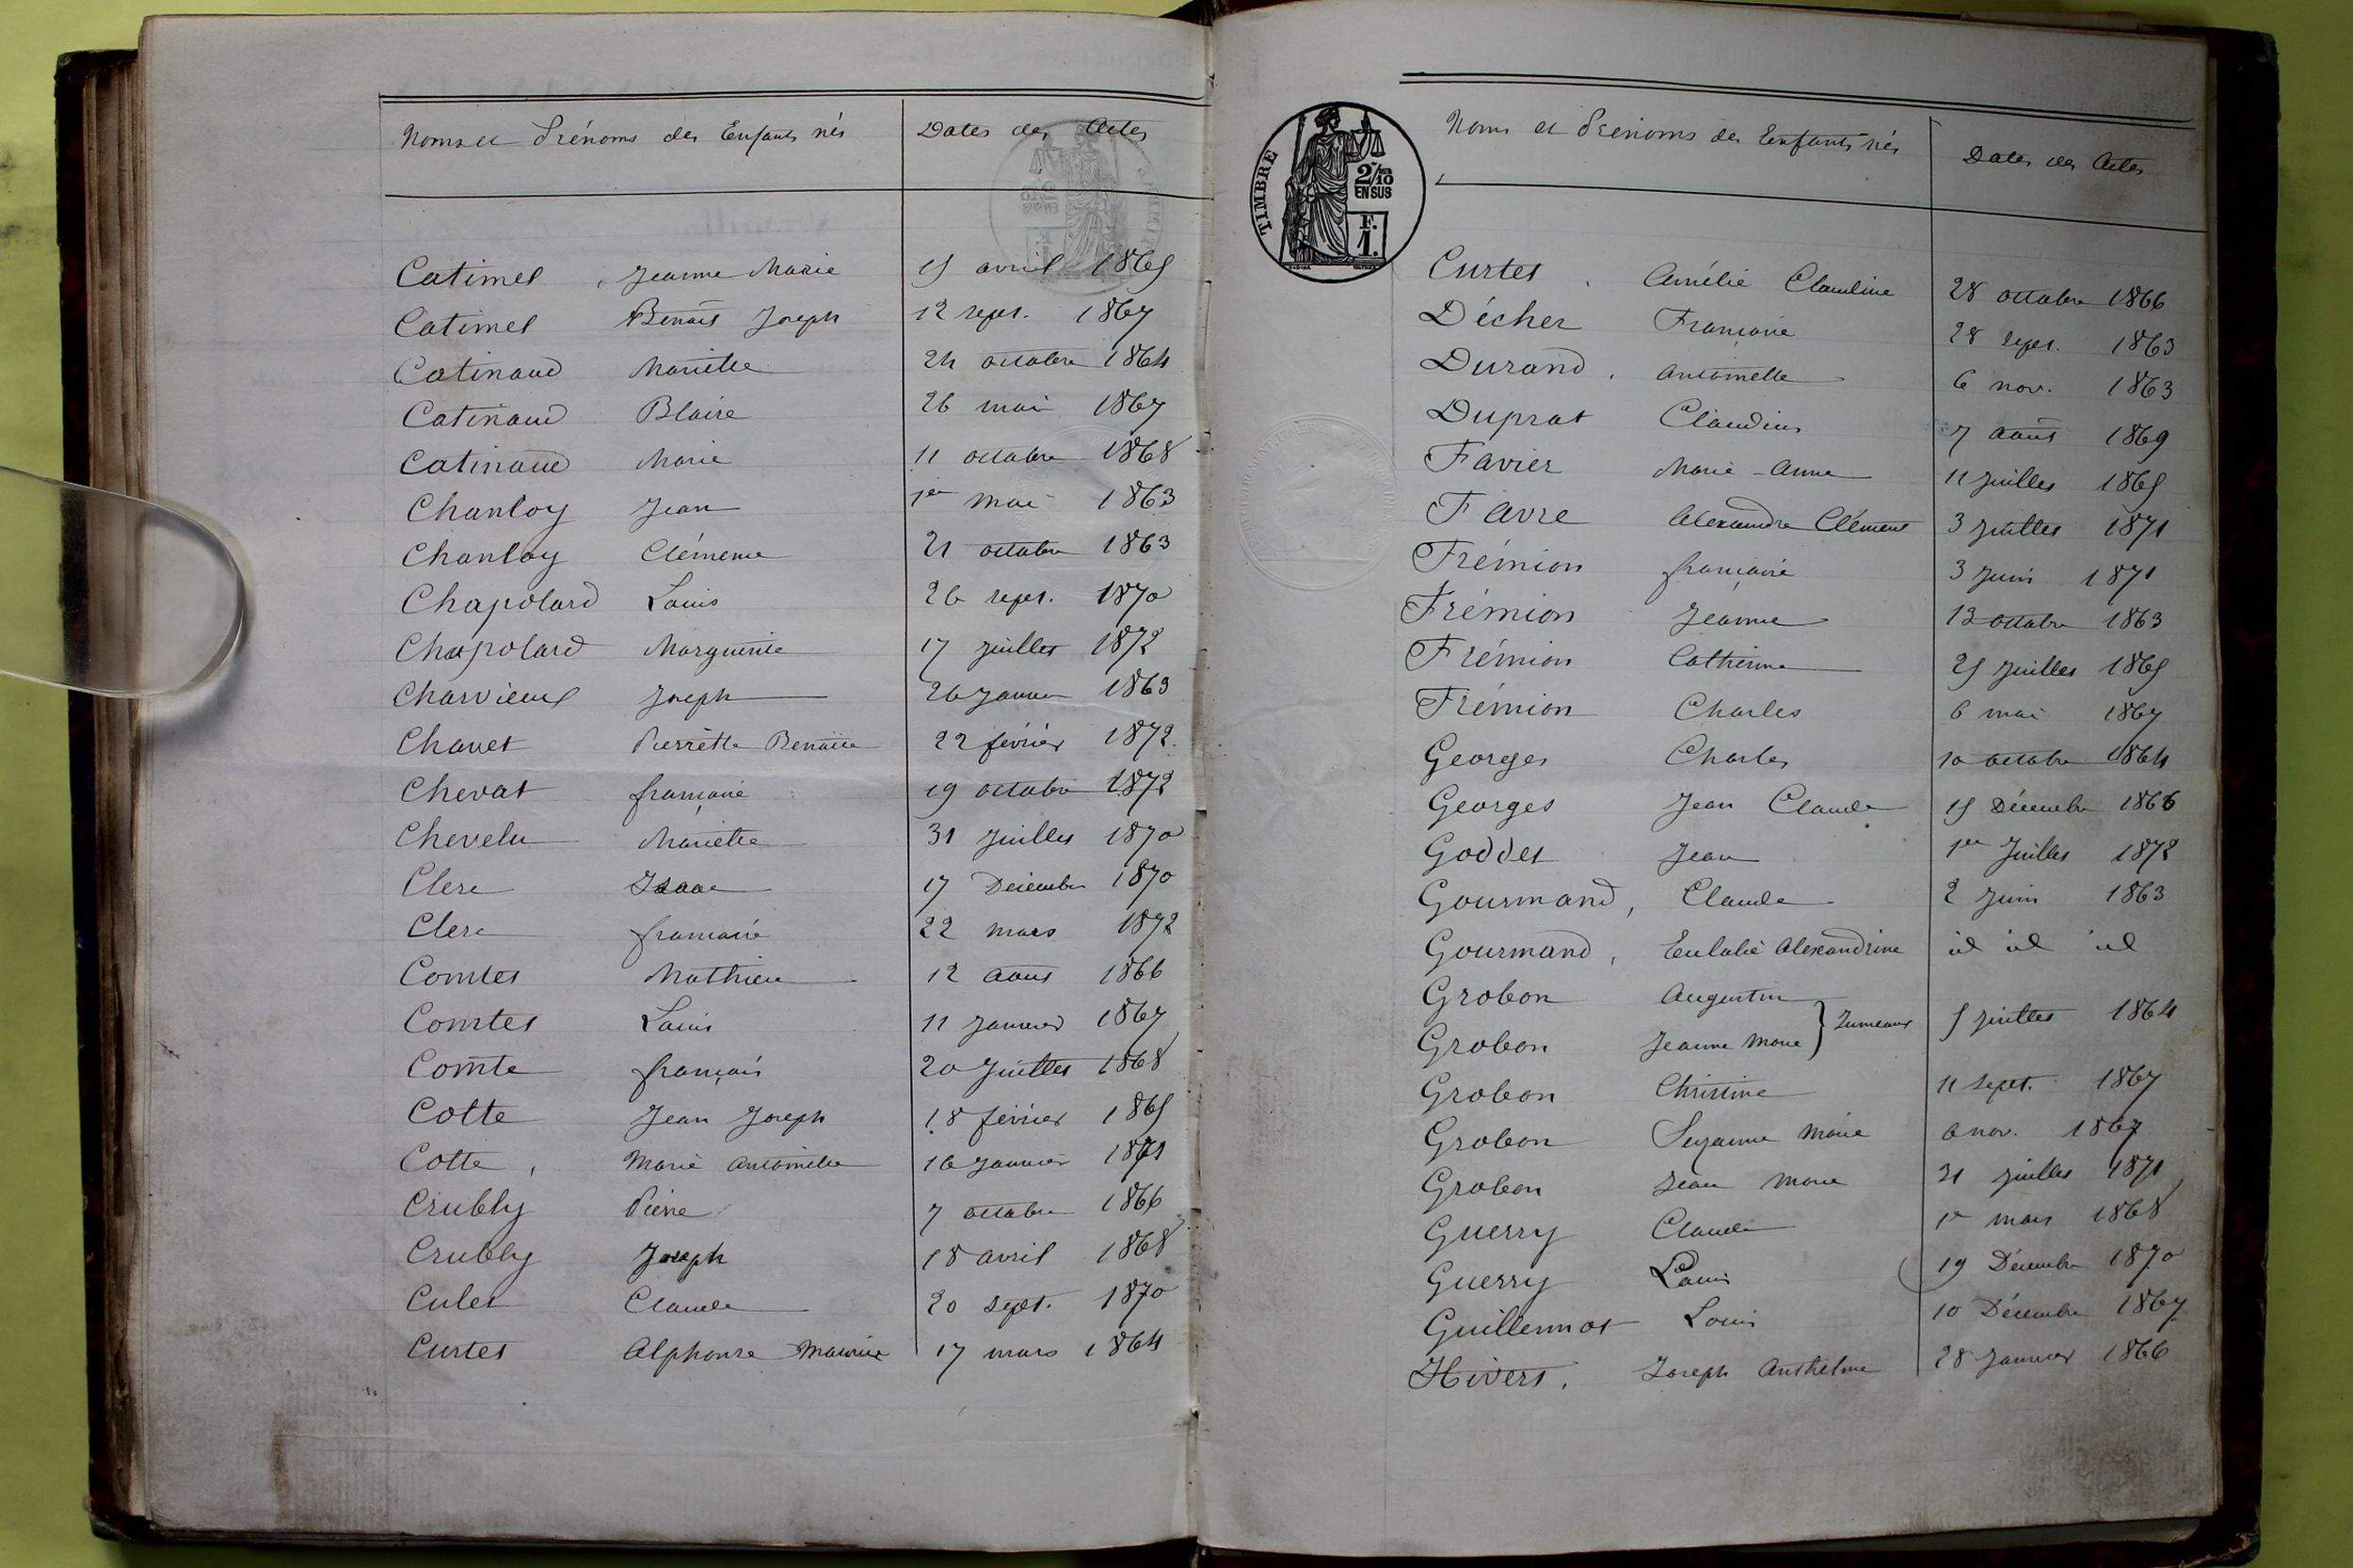 Noms et Prénoms des Enfants nés Dates des Actes
Catimel, Jeanne Marie 15 avril 1865
Catimel Benoît Joseph 12 sept. 1867
Catinaud Mariette 24 octobre 1864
Catinaud Blaise 26 mai 1867
Catinaud Marie 11 octobre 1868
Chanloy Jean 1er mai 1863
Chanloy Clémence 21 octobre 1863
Chapolard Louis 26 sept. 1870
Chapolard Marguerite 17 juillet 1872
Charvieux Joseph 26 Janvier 1863
Chavet Pierrette Benoîte 22 février 1872
Chevat françoise 19 octobre 1872
Chevelu Mariette 31 Juillet 1870
Clerc Isaac 17 Décembre 1870
Clerc françoise 22 mars 1872
Comtet Mathieu 12 août 1866
Comtet Louis 11 Janvier 1867
Comte françois 20 Juillet 1868
Cotte Jean Joseph 18 février 1865
Cotte, Marie Antoinette 16 Janvier 1871
Crubly Pierre 7 octobre 1866
Crubly Joseph 18 avril 1868
Culet Claude 20 sept. 1870
Curtet Alphonse Maurice 17 mars 1864
TIMBRE
2/10
EN SUS
F.
1.
Noms et Prénoms des Enfants nés Dates des Actes
Curtet Amélie Claudine 28 octobre 1866
Décher Françoise 28 sept. 1863
Durand Antoinette 6 nov. 1863
Duprat Claudius 7 août 1869
Favier Marie-Anne 11 Juillet 1865
Favre Alexandre Clément 3 Juillet 1871
Frémion françoise 3 Juin 1871
Frémion Jeanne 13 octobre 1863
Frémion Catherine 25 Juillet 1865
Frémion Charles 6 mai 1867
Georges Charles 10 octobre 1864
Georges Jean Claude 15 Décembre 1866
Goddet Jean 1er Juillet 1872
Gourmand, Claude 2 Juin 1863
Gourmand, Eulalie Alexandrine id id id
Grobon Augustin
Grobon Jeanne Marie } Jumeaux 5 juillet 1864
Grobon Christine 11 sept. 1867
Grobon Suzanne Marie 6 nov. 1867
Grobon Jean Marie 31 juillet 1871
Guerry Claude 1er mars 1868
Guerry Louis 19 Décembre 1870
Guillermot Louis 10 Décembre 1867
Hivert. Joseph Anthelme 28 Janvier 1866